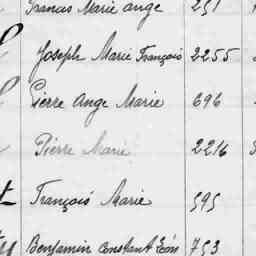 Francis Marie ange 251
Joseph Marie François 2255
Pierre Ange Marie 696
Pierre Marie 2216
François Marie 595
Benjamin Constant Léon 753